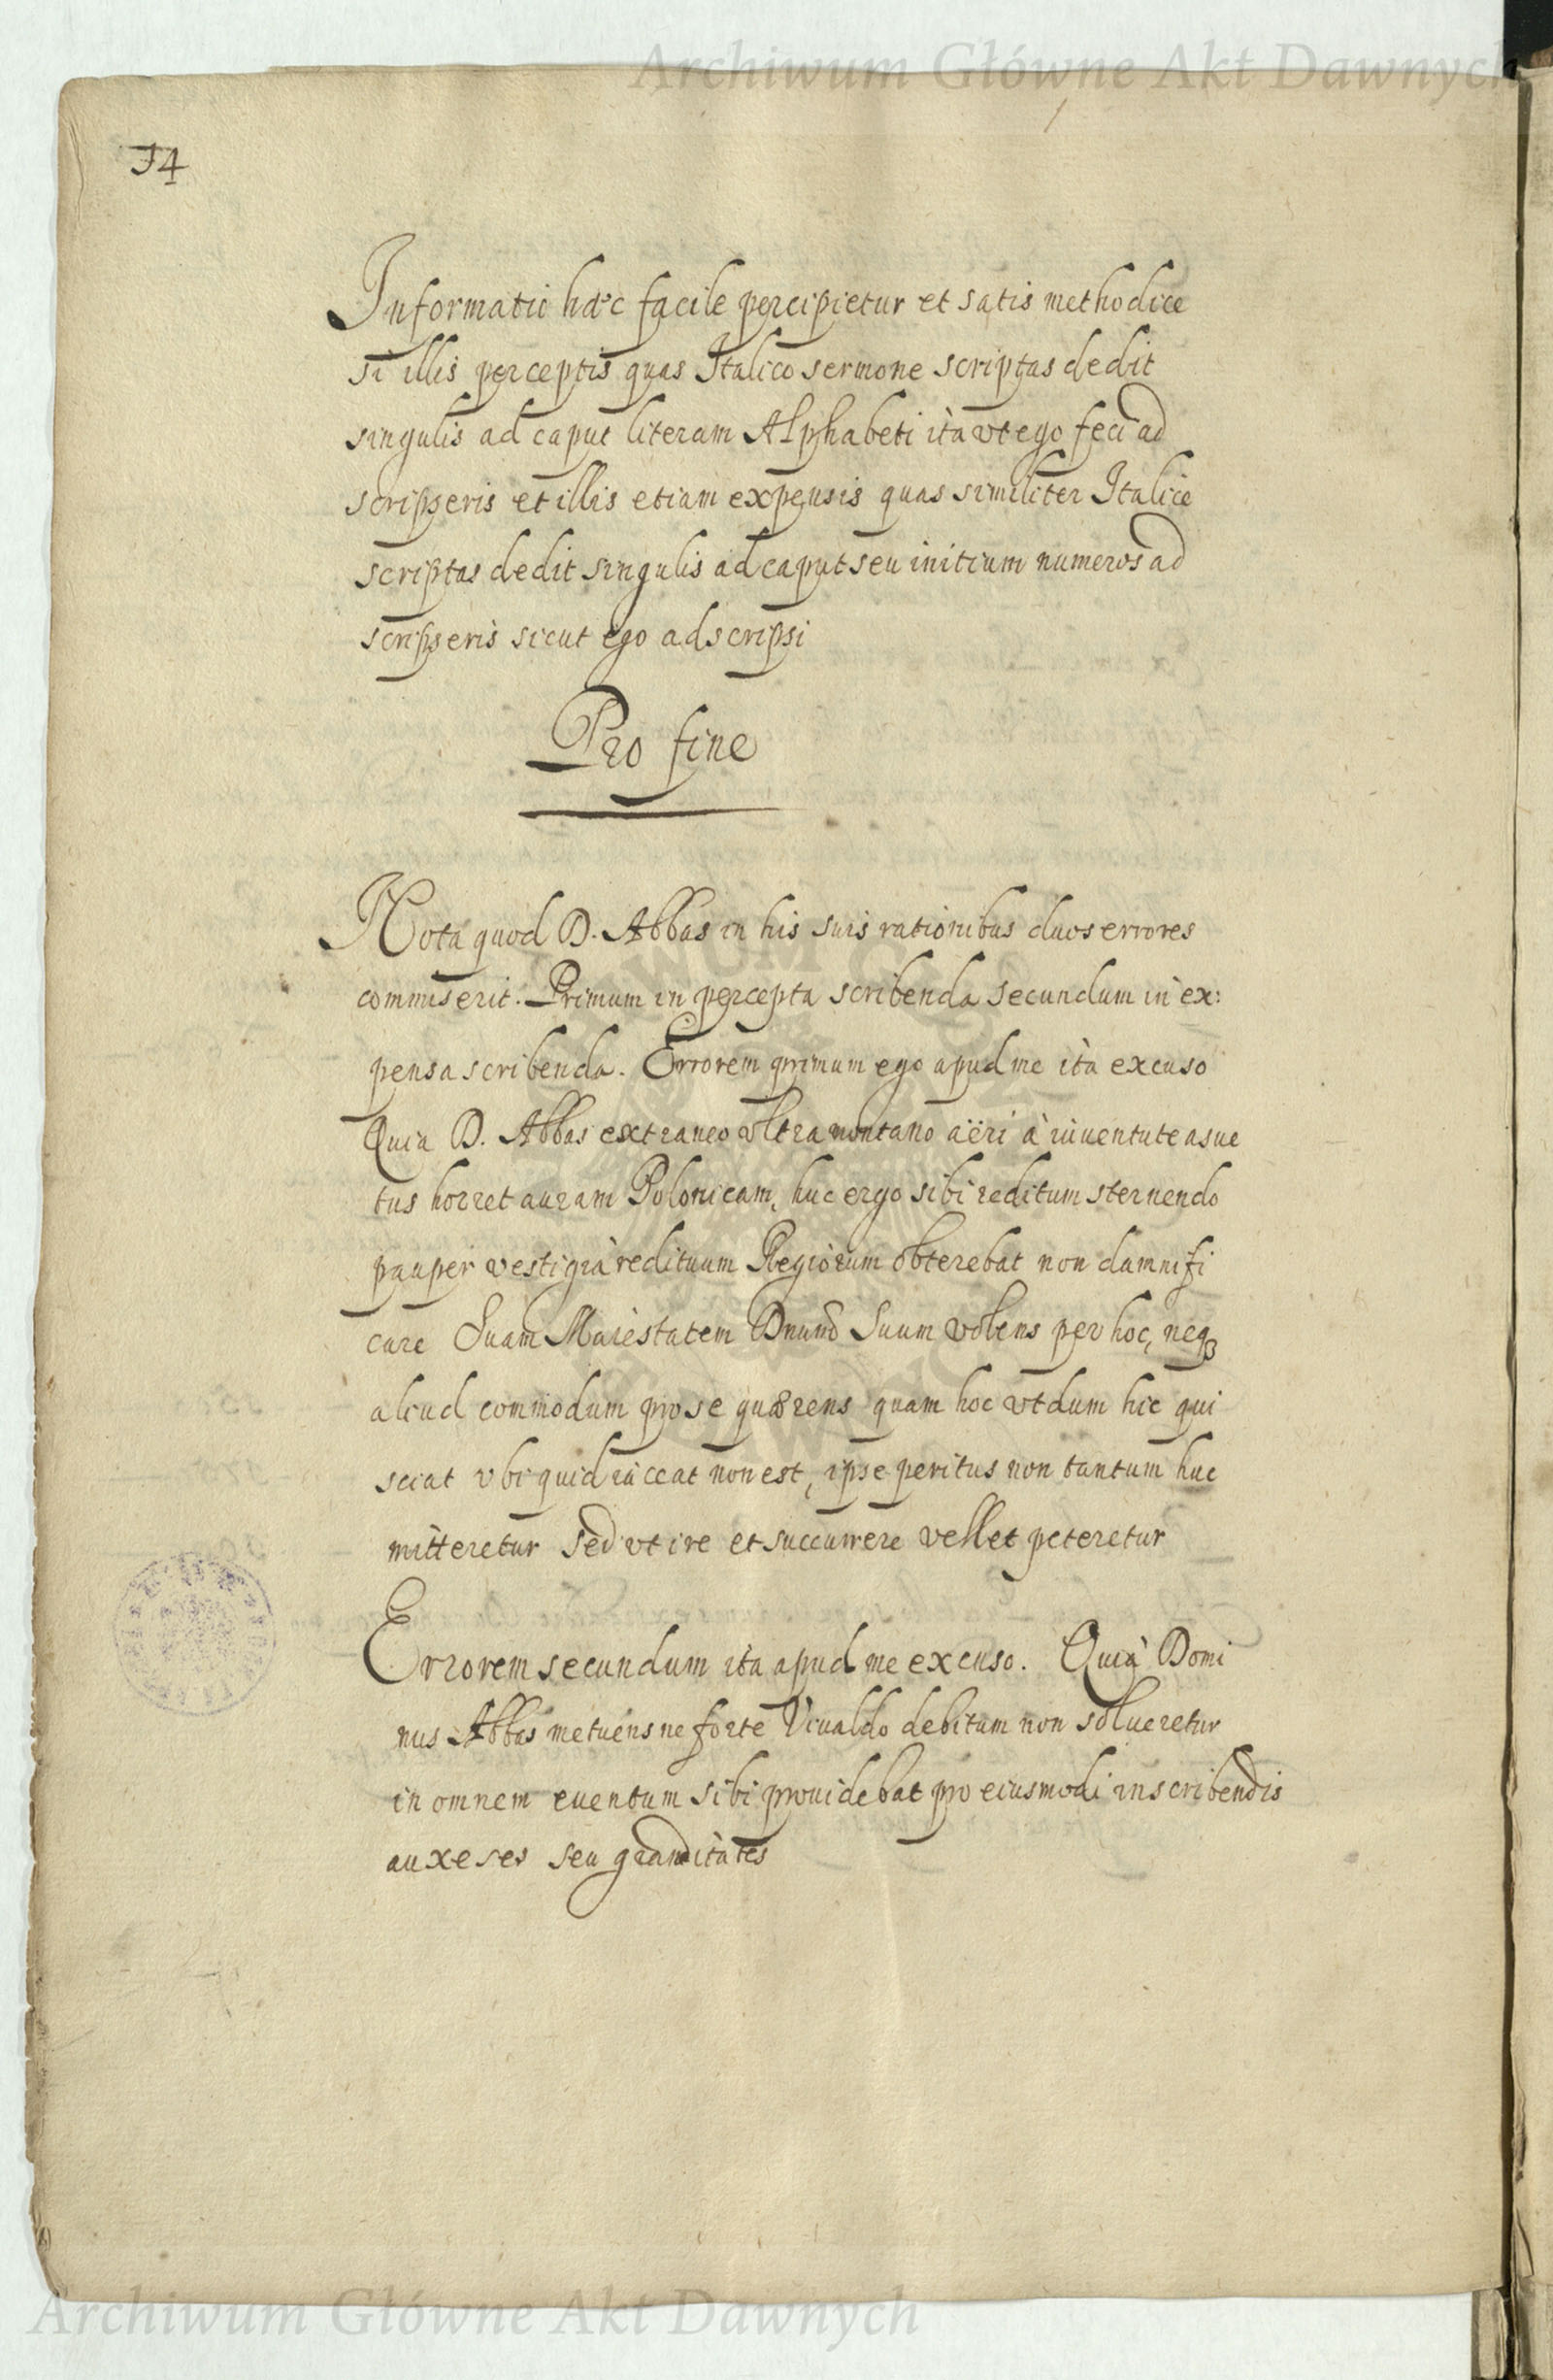 Archiwum Główne Akt Dawnych
34
Informatio hæc facile percipietur et satis methodice
si illis perceptis quas Italico sermone scriptas dedit
singulis ad caput literam Alphabeti ità vt ego feci ad
scripseris et illis etiam expensis quas similiter Italice
scriptas dedit singulis ad caput seu initium numeros ad
scripseris sicut ego adscripsi
Pro fine
Nota quod D. Abbas in his suis rationibus duos errores
commiserit. Primum in percepta scribenda secundum in ex:
pensa scribenda. Errorem primum ego apud me ità excuso
Quia D. Abbas extraneo vltramontano aëri à iuuentute asue
tus horret auram Polonicam, huc ergo sibi reditum sternendo
pauper vestigia redituum Regiorum obterebat non damnifi
care Suam Maiestatem Dnum Suum volens per hoc, neqꝫ
aliud commodum pro se quærens quam hoc vt dum hic qui
sciat vbi quid iaceat non est, ipse peritus non tantum huc
mitteretur sed vt ire et succurrere vellet peteretur
Errorem secundum ita apud me excuso. Quia Domi
nus Abbas metuens ne forte Viualdo debitum non solueretur
in omnem euentum sibi prouidebat pro eiusmodi inscribendis
auxeses seu granditates
Archiwum Główne Akt Dawnych